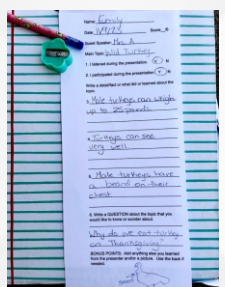 Name: Emily
Date: 
Score: 
Guest Speaker: Mrs. A
Main Topic: Wild Turkey
1. I listened during the presentation. Y N
2. I participated during the presentation. Y N
Write a detail/fact or what did or learned about the
topic.
3. Male turkeys can weigh
up to 25 pounds
4. Turkeys can see
very well
5. Male turkeys have
a beard on their
chest
6. Write a QUESTION about the topic that you
would like to know or wonder about.
Why do we eat turkey
on Thanksgiving?
BONUS POINTS: Add anything else you learned
from the presenter and/or a picture. Use the back if
needed.